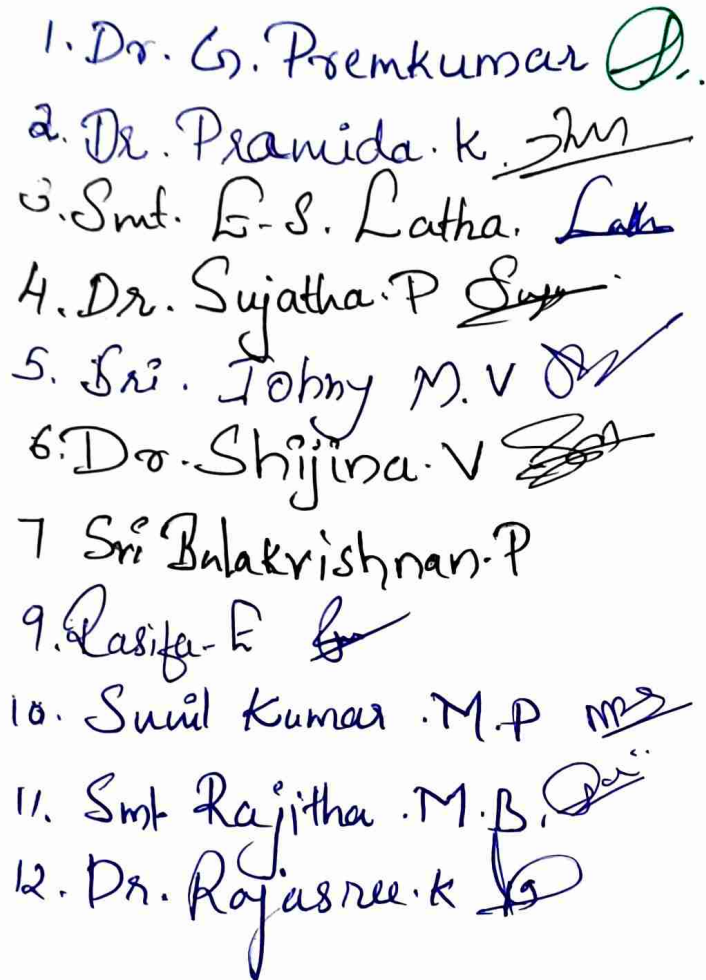 1. Dr. G. Premkumar
2. Dr. Pramida. K.
3. Smt. E-S. Latha. Latha
4. Dr. Sujatha. P
5. Sri. Johny M. V
6. Dr. Shijina. V
7 Sri Balakrishnan. P
9. Rasifa- E
10. Sunil Kumar . M. P
11. Smt Rajitha . M. B.
12. Dr. Rajasree. K